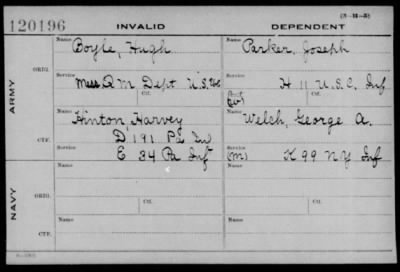 (3-M-5)
120196 INVALID DEPENDENT
Name Boyle, Hugh Name Parker, Joseph
ORIG. Service Mess Q M Dept U.S. Vol Service H 11 U.S.C. Inf
ARMY Ctf. Ctf.
Name Hinton, Harvey Name Welch, George A.
D 191 Pa Inf
CTF. Service E 34 Pa Inf Service (M) K 99 N Y Inf
Name Name
ORIG. Service Service
NAVY Ctf. Ctf.
Name Name
CTF.